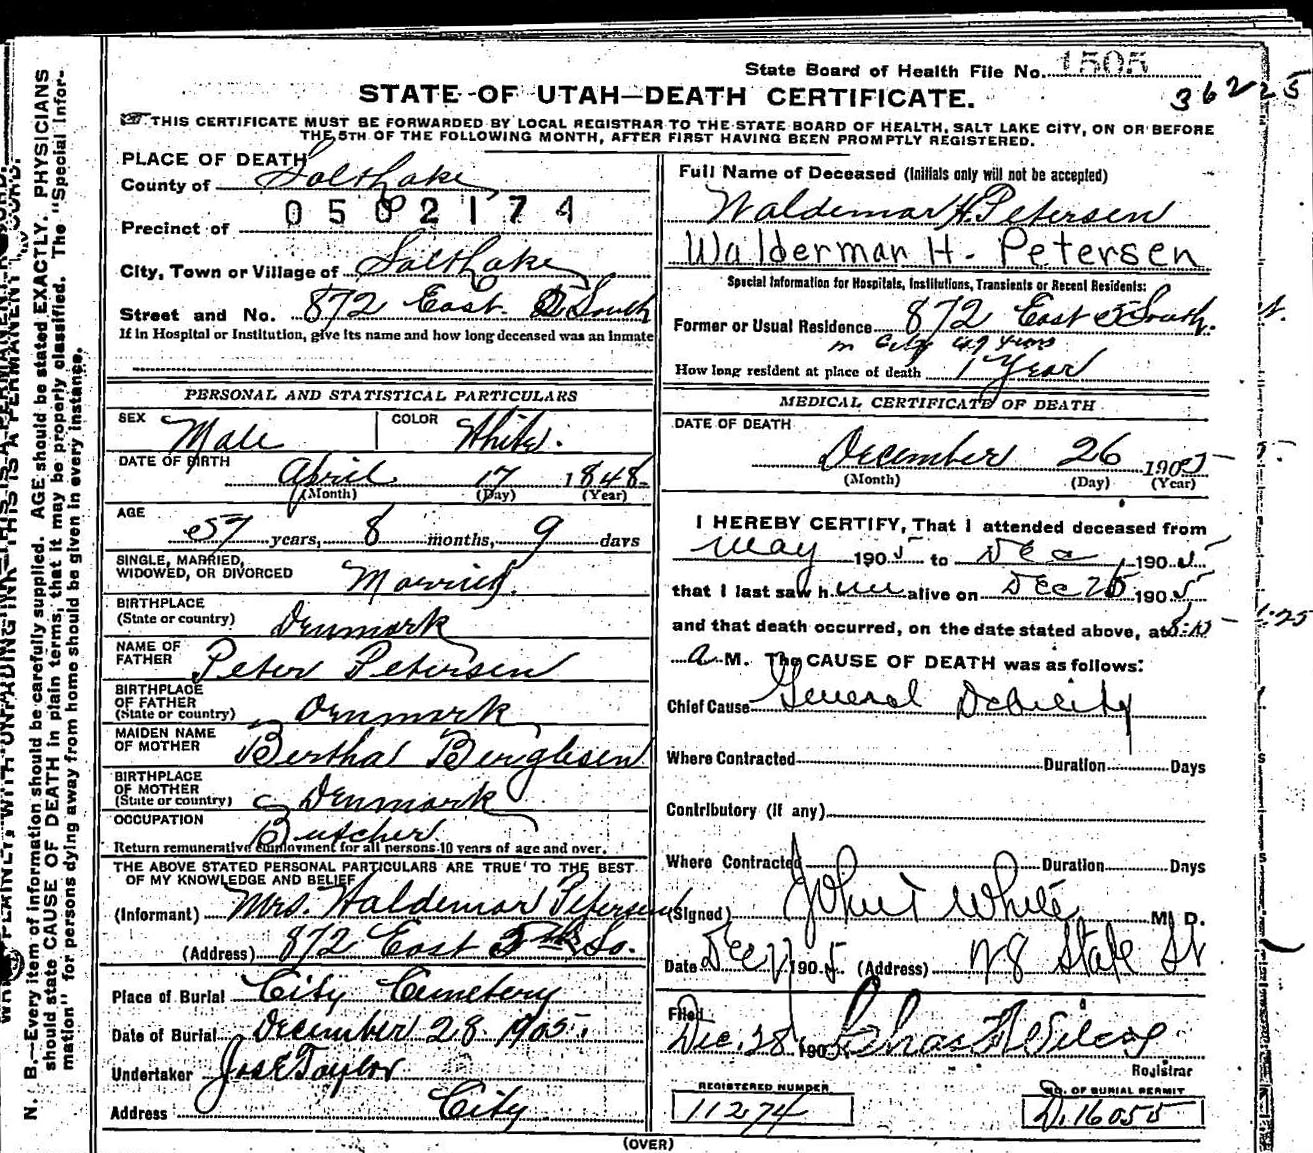 State Board of Health File No. 1505
36225
STATE OF UTAH—DEATH CERTIFICATE.
THIS CERTIFICATE MUST BE FORWARDED BY LOCAL REGISTRAR TO THE STATE BOARD OF HEALTH, SALT LAKE CITY, ON OR BEFORE
THE 5TH OF THE FOLLOWING MONTH, AFTER FIRST HAVING BEEN PROMPTLY REGISTERED.
PLACE OF DEATH
County of Salt Lake
0502174
Precinct of
City, Town or Village of Salt Lake
Street and No. 872 East 5 South
If in Hospital or Institution, give its name and how long deceased was an inmate
PERSONAL AND STATISTICAL PARTICULARS
SEX Male COLOR White.
DATE OF BIRTH April 17 1848
(Month) (Day) (Year)
AGE
57 years, 8 months, 9 days
SINGLE, MARRIED,
WIDOWED, OR DIVORCED Married.
BIRTHPLACE
(State or country) Denmark
NAME OF
FATHER Peter Petersen
BIRTHPLACE
OF FATHER
(State or country) Denmark
MAIDEN NAME
OF MOTHER Bertha
BIRTHPLACE
OF MOTHER
(State or country) Denmark
OCCUPATION
Butcher
Return remunerative employment for all persons 10 years of age and over.
THE ABOVE STATED PERSONAL PARTICULARS ARE TRUE TO THE BEST
OF MY KNOWLEDGE AND BELIEF
(Informant) Mrs. Waldemar Petersen
(Address) 872 East 5th So.
Place of Burial City Cemetery
Date of Burial December 28 1905.
Undertaker Jos E Taylor
Address City
Full Name of Deceased (Initials only will not be accepted)
Waldemar H. Petersen
Walderman H. Petersen
Special Information for Hospitals, Institutions, Transients or Recent Residents:
Former or Usual Residence 872 East 5 South.
in City 49 years
How long resident at place of death 1 Year
MEDICAL CERTIFICATE OF DEATH
DATE OF DEATH
December 26 1905
(Month) (Day) (Year)
I HEREBY CERTIFY, That I attended deceased from
May 1905 to Dec 1905
that I last saw him alive on Dec 25 1905
and that death occurred, on the date stated above, at
a M. The CAUSE OF DEATH was as follows:
Chief Cause General Debility
Where Contracted Duration Days
Contributory (if any)
Where Contracted Duration Days
(Signed) John T White M. D.
Date Dec 1905. (Address) State St
Filed
Dec. 28 1905 Chas F Wilcox
Registrar
REGISTERED NUMBER
11274
NO. OF BURIAL PERMIT
D. 16055
(OVER)
N. B.—Every item of information should be carefully supplied. AGE should be stated EXACTLY. PHYSICIANS
should state CAUSE OF DEATH in plain terms, that it may be properly classified. The "Special Infor-
mation" for persons dying away from home should be given in every instance.